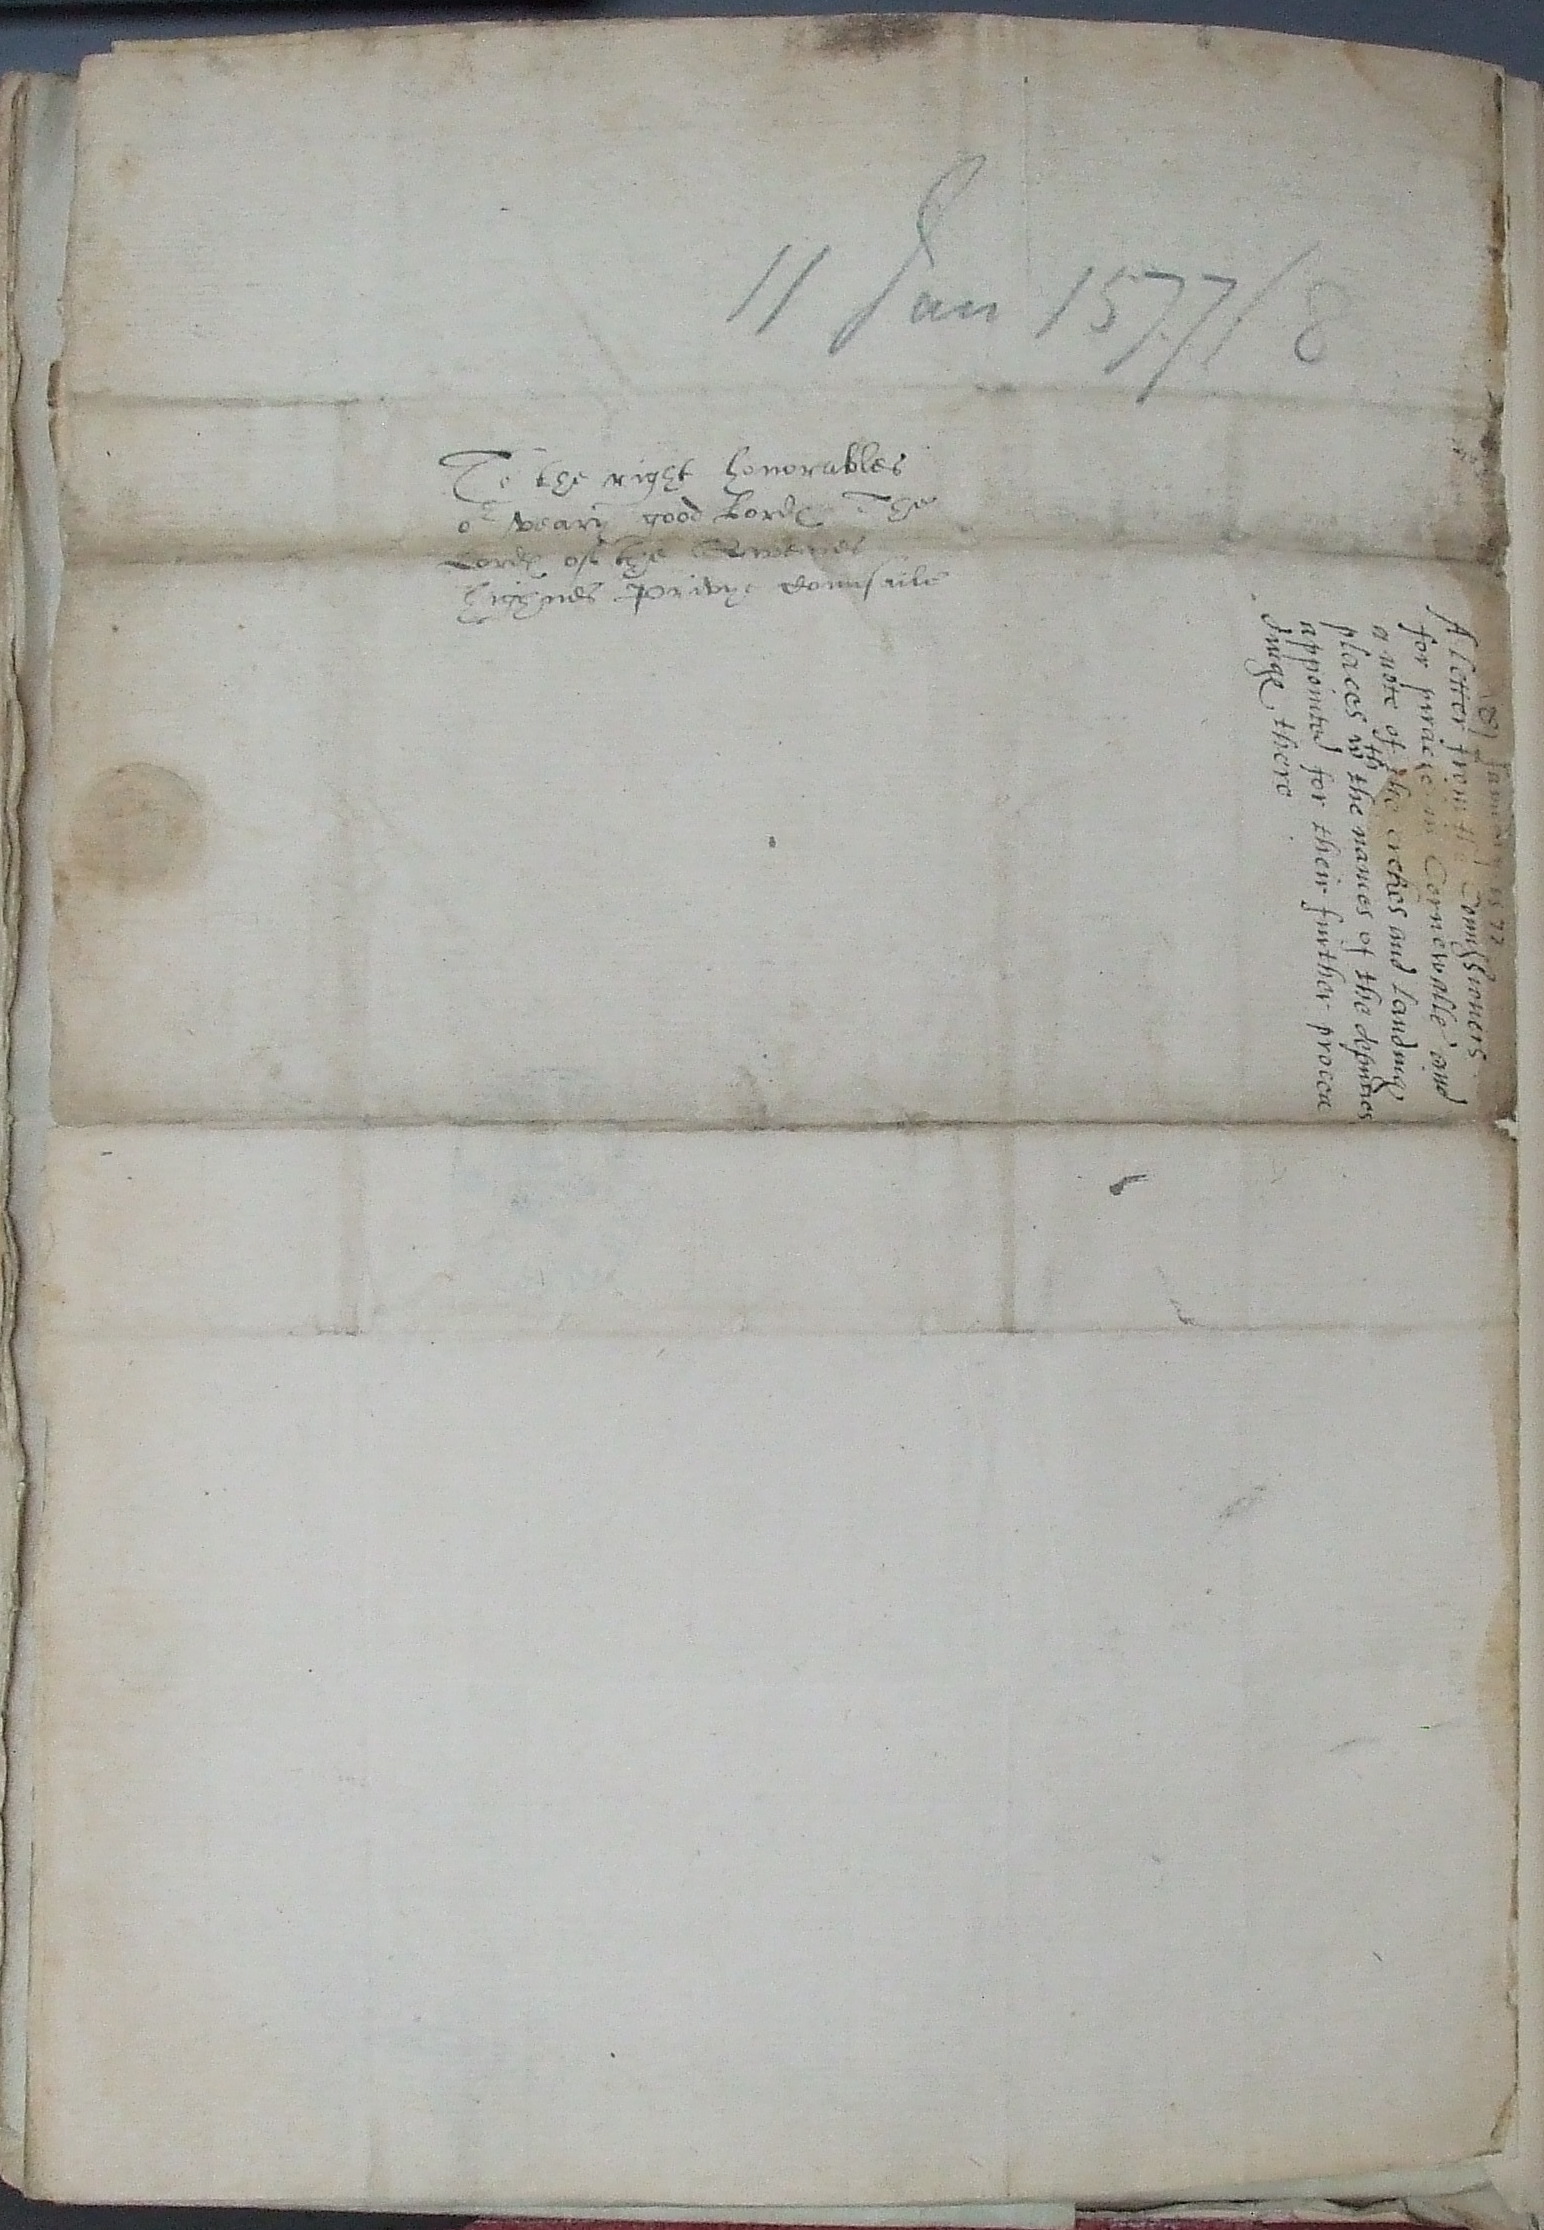 11 Jan 1577/8
To the right honorables
or veary good Lordes The
Lordes of the Queenes
highnes Privye Counsaile
Januarij 1577
A letter from the Comissioners
for piracie in Cornewalle and
a note of the crekes and landing
places wth the names of the deputies
appointed for their further procea
dinge there.